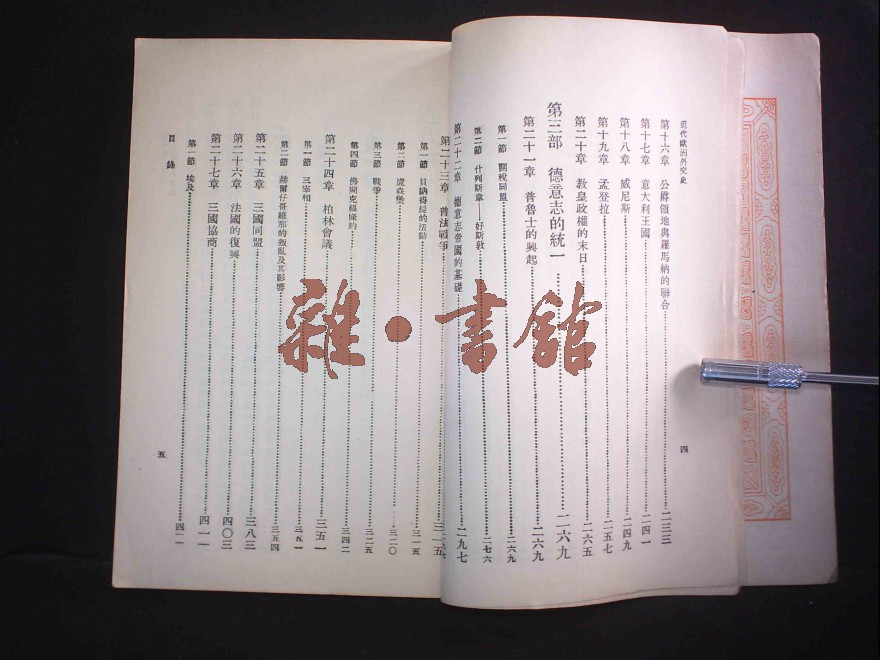 近代歐洲外交史
第十六章 公爵領地與羅馬納的聯合 二三三
第十七章 意大利王國 二四一
第十八章 威尼斯 二四九
第十九章 孟登拉 二五七
第二十章 教皇政權的末日 二六五
第三部 德意志的統一 二六九
第二十一章 普魯士的興起 二六九
第一節 關稅同盟 二六九
第二節 什列斯威——好斯敦 二七六
第二十二章 德意志帝國的基礎 二九七
四
第二十三章 普法戰爭 三一五
第一節 貝納得提的活動 三一五
第二節 盧森堡 三二〇
第三節 戰爭 三二五
第四節 佛蘭克福條約 三四二
第二十四章 柏林會議 三五一
第一節 三宰相 三五一
第二節 赫爾仔哥維那的叛亂及其影響 三五四
第二十五章 三國同盟 三八三
第二十六章 法國的復興 四〇三
第二十七章 三國協商 四一一
第一節 埃及 四一一
目錄
五
雜·書館